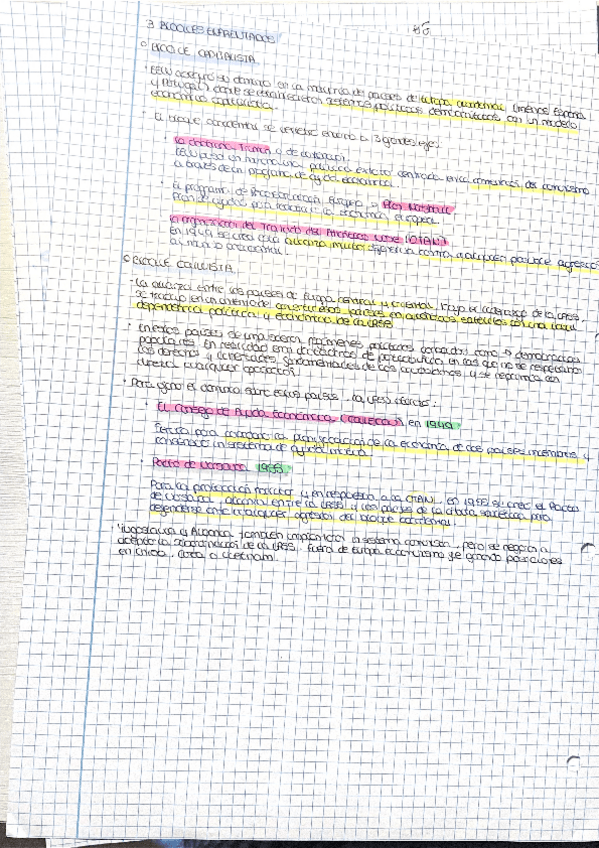 3 BLOQUES ENFRENTADOS
BLOQUE CAPITALISTA
EEUU aseguró su dominio en la mayoría de países de Europa occidental (menos España
y Portugal) donde se establecieron sistemas políticos democráticos con un modelo
económico capitalista.
El bloque occidental se vertebró entorno a 3 grandes ejes:
La doctrina Truman o de contención.
EEUU pasó a una política exterior centrada en la contención del comunismo
a través de un programa de ayuda económica.
El programa de Reconstrucción Europeo o Plan Marshall
Plan de ayudas para reactivar la economía europea.
La organización del Tratado del Atlántico Norte (OTAN)
En 1949 se crea una alianza militar contra cualquier posible agresión
BLOQUE COMUNISTA
La alianza entre los países de Europa central y oriental, bajo el liderazgo de la URSS
se tradujo en convertir esos países en auténticos satélites con una
dependencia política y económica de la URSS
En estos países se establecieron regímenes políticos conocidos como democracias
populares. En realidad eran dictaduras de partido único en las que no se respetaban
los derechos y libertades fundamentales de los ciudadanos y se reprimía con
dureza cualquier oposición.
Para lograr el dominio sobre estos países, la URSS creó:
El Consejo de Ayuda Económica (COMECON) en 1949
Servía para coordinar la planificación de la economía de los países miembros y
constituir un sistema de ayuda mutua.
Pacto de Varsovia 1955
Para la protección militar y en respuesta a la OTAN, en 1955 se creó el Pacto
de Varsovia, alianza entre la URSS y los países de la órbita soviética para
defenderse ante cualquier agresión del bloque occidental.
Yugoslavia y Albania también implantaron un sistema comunista, pero se negaron a
aceptar la subordinación de la URSS. Fuera de Europa el comunismo fue ganando posiciones
en China, Corea o Vietnam.